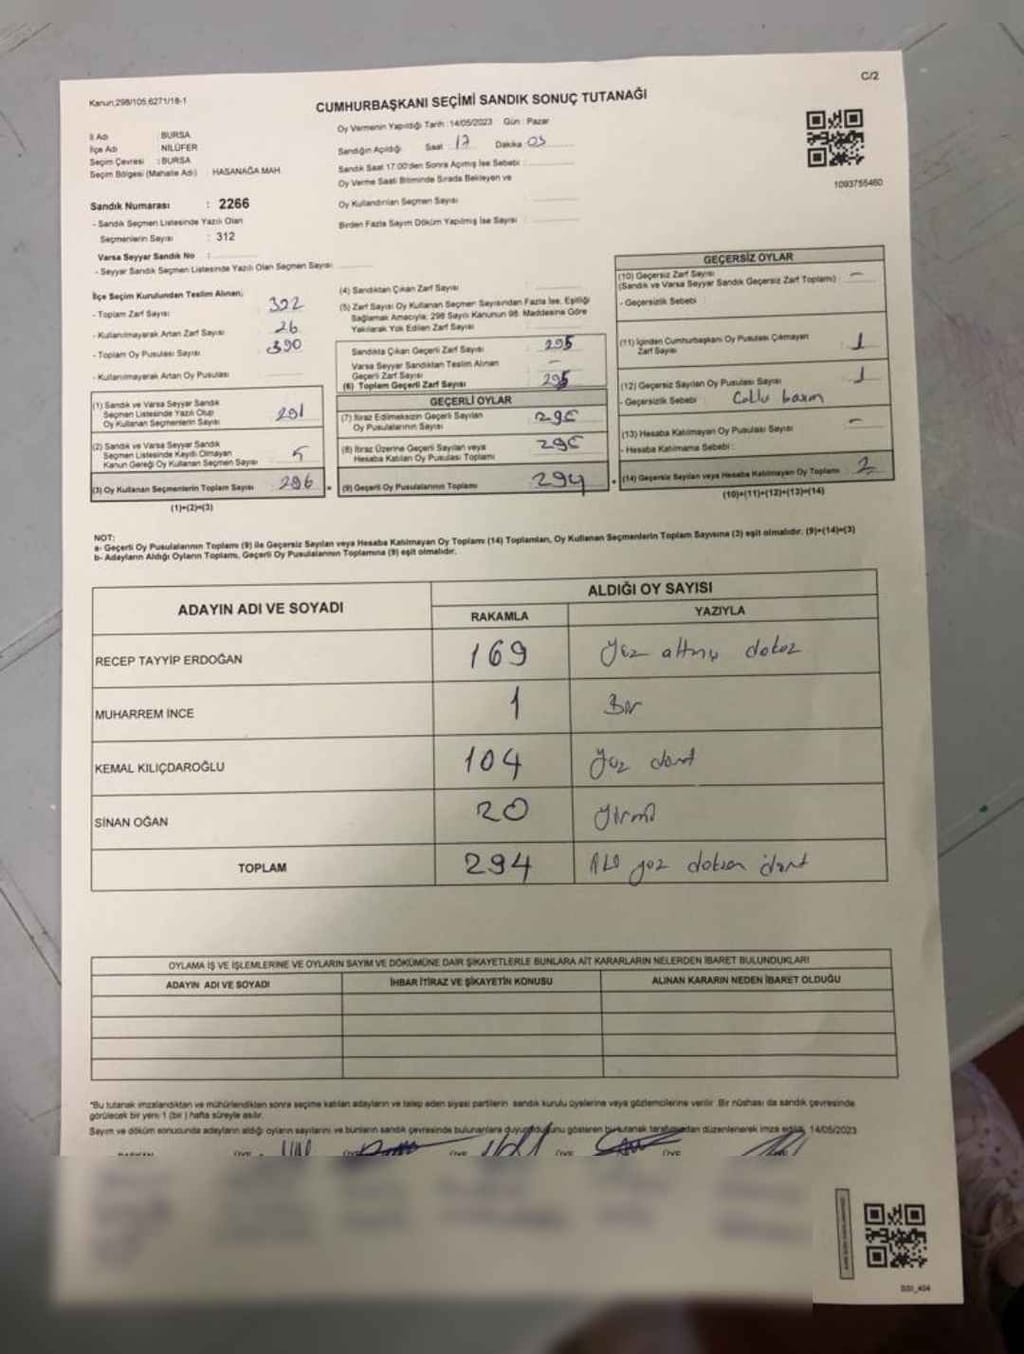 C/2
Kanun:298/105,6271/18-1
CUMHURBAŞKANI SEÇİMİ SANDIK SONUÇ TUTANAĞI
İl Adı : BURSA
İlçe Adı : NİLÜFER
Seçim Çevresi : BURSA
Seçim Bölgesi (Mahalle Adı) : HASANAĞA MAH.
Sandık Numarası : 2266
- Sandık Seçmen Listesinde Yazılı Olan
Seçmenlerin Sayısı : 312
Varsa Seyyar Sandık No :
- Seyyar Sandık Seçmen Listesinde Yazılı Olan Seçmen Sayısı
Oy Vermenin Yapıldığı Tarih : 14/05/2023 Gün : Pazar
Sandığın Açıldığı Saat 17 Dakika 03
Sandık Saat 17:00'den Sonra Açılmış İse Sebebi :
Oy Verme Saati Bitiminde Sırada Bekleyen ve
Oy Kullandırılan Seçmen Sayısı :
Birden Fazla Sayım Döküm Yapılmış İse Sayısı :
1093755460
İlçe Seçim Kurulundan Teslim Alınan;
- Toplam Zarf Sayısı : 322
- Kullanılmayarak Artan Zarf Sayısı : 26
- Toplam Oy Pusulası Sayısı : 390
- Kullanılmayarak Artan Oy Pusulası :
(1) Sandık ve Varsa Seyyar Sandık
Seçmen Listesinde Yazılı Olup
Oy Kullanan Seçmenlerin Sayısı 291
(2) Sandık ve Varsa Seyyar Sandık
Seçmen Listesinde Kaydı Olmayan
Kanun Gereği Oy Kullanan Seçmen Sayısı 5
(3) Oy Kullanan Seçmenlerin Toplam Sayısı 296
(1)+(2)=(3)
(4) Sandıktan Çıkan Zarf Sayısı :
(5) Zarf Sayısı Oy Kullanan Seçmen Sayısından Fazla İse, Eşitliği
Sağlamak Amacıyla; 298 Sayılı Kanunun 98. Maddesine Göre
Yakılarak Yok Edilen Zarf Sayısı :
Sandıkta Çıkan Geçerli Zarf Sayısı : 295
Varsa Seyyar Sandıktan Teslim Alınan
Geçerli Zarf Sayısı : -
(6) Toplam Geçerli Zarf Sayısı 295
GEÇERLİ OYLAR
(7) İtiraz Edilmeksizin Geçerli Sayılan
Oy Pusulalarının Sayısı
(8) İtiraz Üzerine Geçerli Sayılan veya
Hesaba Katılan Oy Pusulası Toplamı
(9) Geçerli Oy Pusulalarının Toplamı 294
GEÇERSİZ OYLAR
(10) Geçersiz Zarf Sayısı
(Sandık ve Varsa Seyyar Sandık Geçersiz Zarf Toplamı) : -
- Geçersizlik Sebebi :
(11) İçinden Cumhurbaşkanı Oy Pusulası Çıkmayan
Zarf Sayısı : 1
(12) Geçersiz Sayılan Oy Pusulası Sayısı : 1
- Geçersizlik Sebebi :
(13) Hesaba Katılmayan Oy Pusulası Sayısı : -
- Hesaba Katılmama Sebebi :
(14) Geçersiz Sayılan veya Hesaba Katılmayan Oy Toplamı 2
(10)+(11)+(12)+(13)=(14)
NOT:
a- Geçerli Oy Pusulalarının Toplamı (9) ile Geçersiz Sayılan veya Hesaba Katılmayan Oy Toplamı (14) Toplamları, Oy Kullanan Seçmenlerin Toplam Sayısına (3) eşit olmalıdır. (9)+(14)=(3)
b- Adayların Aldığı Oyların Toplamı, Geçerli Oy Pusulalarının Toplamına (9) eşit olmalıdır.
ADAYIN ADI VE SOYADI
ALDIĞI OY SAYISI
RAKAMLA YAZIYLA
RECEP TAYYİP ERDOĞAN 169 Yüz altmış dokuz
MUHARREM İNCE 1 Bir
KEMAL KILIÇDAROĞLU 104 Yüz dört
SİNAN OĞAN 20 Yirmi
TOPLAM 294 iki yüz doksan dört
OYLAMA İŞ VE İŞLEMLERİNE VE OYLARIN SAYIM VE DÖKÜMÜNE DAİR ŞİKAYETLERLE BUNLARA AİT KARARLARIN NELERDEN İBARET BULUNDUKLARI
ADAYIN ADI VE SOYADI İHBAR İTİRAZ VE ŞİKAYETİN KONUSU ALINAN KARARIN NEDEN İBARET OLDUĞU
*Bu tutanak imzalandıktan ve mühürlendikten sonra seçime katılan adayların ve talep eden siyasi partilerin sandık kurulu üyelerine veya gözlemcilerine verilir. Bir nüshası da sandık çevresinde
görülecek bir yere 1 (bir) hafta süreyle asılır.
Sayım ve döküm sonucunda adayların aldığı oyların sayılarını ve bunların sandık çevresinde bulunanlara duyurulduğunu gösteren bu tutanak tarafımızdan düzenlenerek imza edildi. 14/05/2023
BAŞKAN ÜYE ÜYE ÜYE ÜYE ÜYE